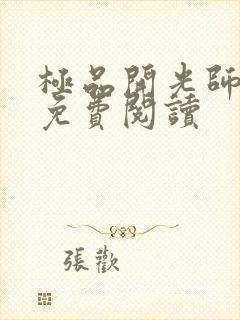 極品開光師
免費閱讀
張歡